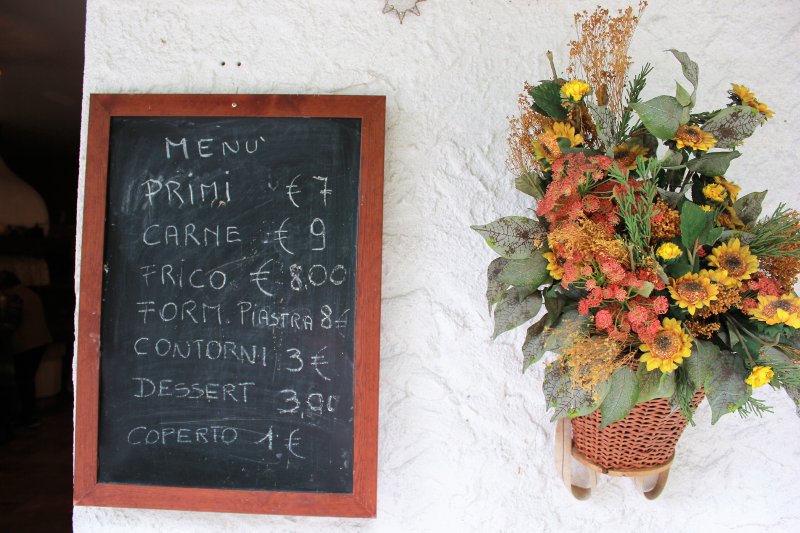 MENU'
PRIMI € 7
CARNE € 9
FRICO € 8.00
FORM. PIASTRA 8 €
CONTORNI 3 €
DESSERT 3,00
COPERTO 1. €